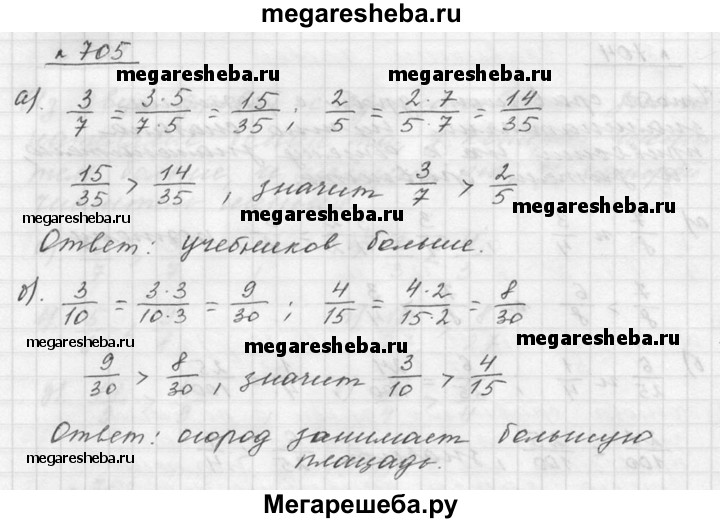 megaresheba.ru
№ 705
megaresheba.ru megaresheba.ru
а). 3/7 = 3·5/7·5 = 15/35 ; 2/5 = 2·7/5·7 = 14/35
15/35 > 14/35 , значит 3/7 > 2/5
megaresheba.ru megaresheba.ru
Ответ: учебников больше.
б). 3/10 = 3·3/10·3 = 9/30 ; 4/15 = 4·2/15·2 = 8/30
megaresheba.ru megaresheba.ru
9/30 > 8/30 , значит 3/10 > 4/15
Ответ: огород занимает большую
megaresheba.ru площадь. megaresheba.ru
Мегарешеба.ру